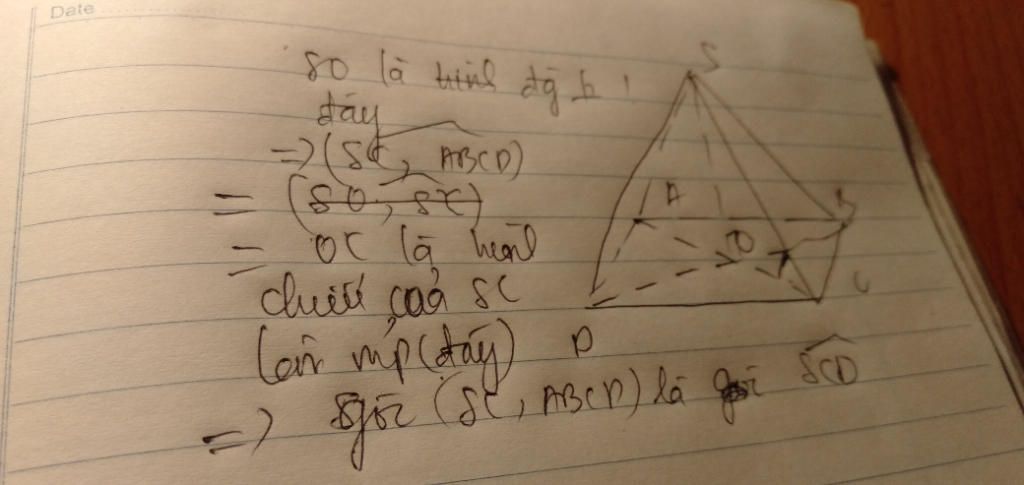 Date
SO là hình
đáy
=> (SC, ABCD)
= (SO, SC)
= OC là hình
chiếu của SC
lên mp (đáy)
=> góc (SC, ABCD) là góc SCD
S
A
B
O
C
D